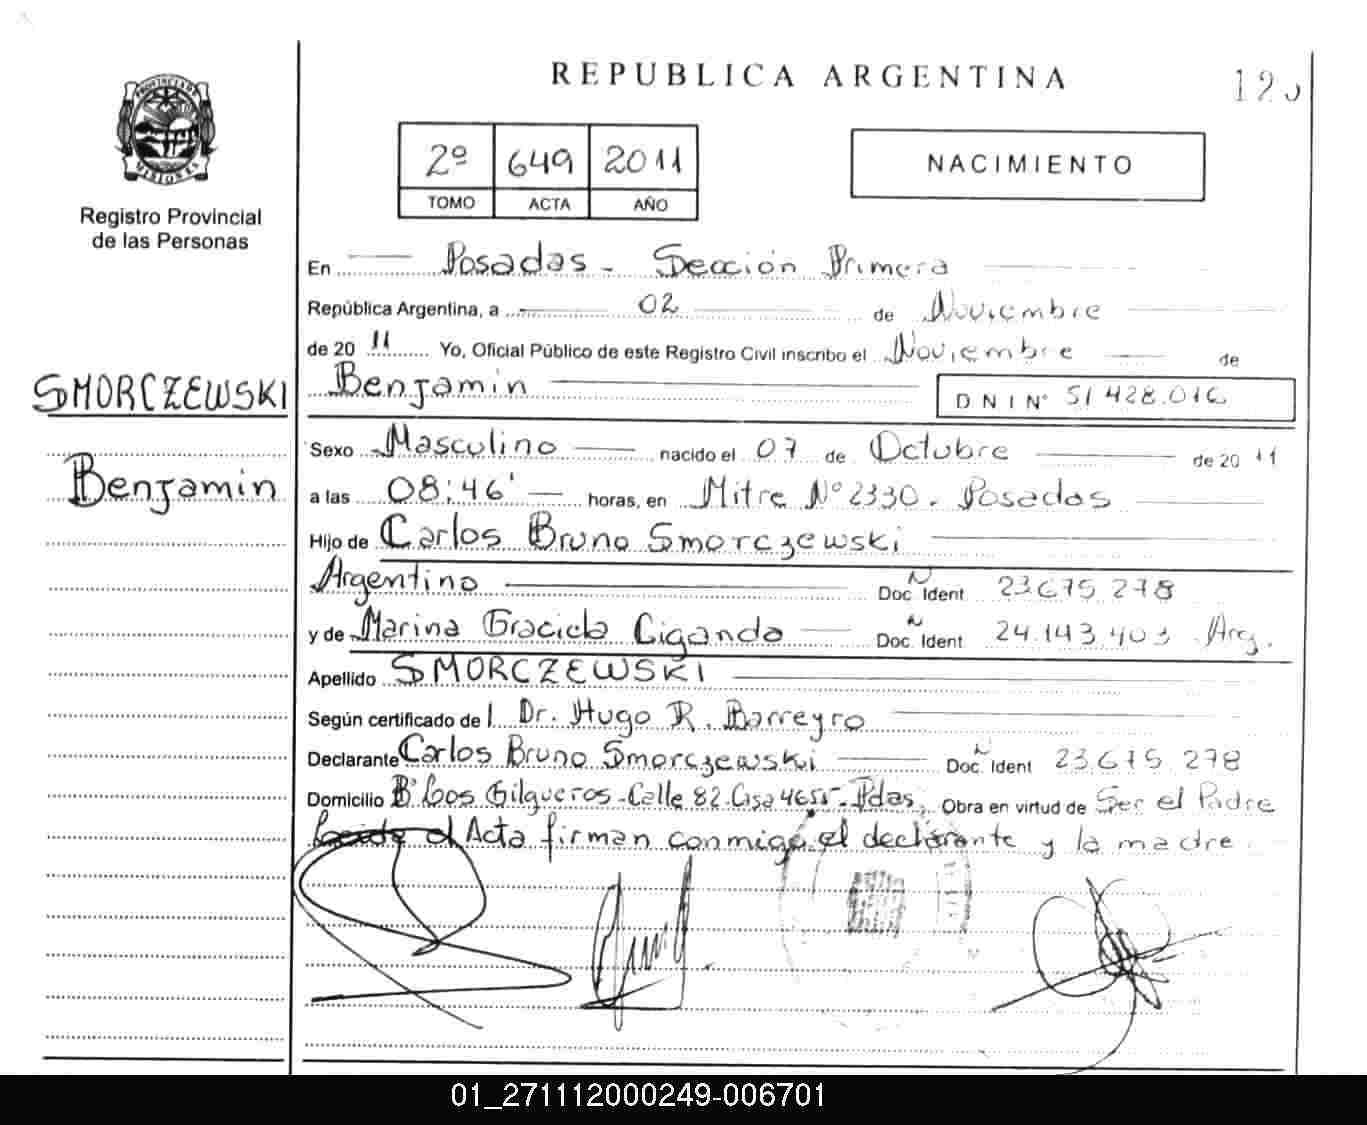 REPUBLICA ARGENTINA
PROVINCIA DE
MISIONES
Registro Provincial
de las Personas
2º 649 2011
TOMO ACTA AÑO
NACIMIENTO
En Posadas - Sección Primera
República Argentina, a 02 de Noviembre
de 20 11 Yo, Oficial Público de este Registro Civil inscribo el Noviembre de
Benjamin DNI Nº 51 428.016
SMORCZEWSKI
Benjamin
Sexo Masculino nacido el 07 de Octubre de 20 11
a las 08:46' horas, en Mitre Nº 2330. Posadas
Hijo de Carlos Bruno Smorczewski
Argentino Doc. Ident N 23.675.278
y de Marina Graciela Ciganda Doc. Ident N 24.143.403 Arg.
Apellido SMORCZEWSKI
Según certificado de l Dr. Hugo R. Barreyro
Declarante Carlos Bruno Smorczewski Doc. Ident N 23.675.278
Domicilio Bº Los Gilgueros - Calle 82. Casa 4655 - Pdas. Obra en virtud de Ser el Padre
el Acta firman conmigo el declarante y la madre
01_271112000249-006701